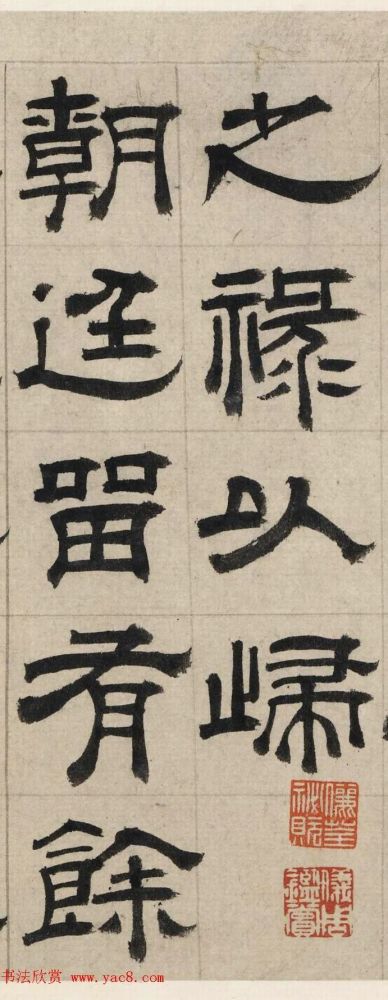 之祿以歸
朝廷留有餘
儀周鑑賞
书法欣赏 www.yac8.com